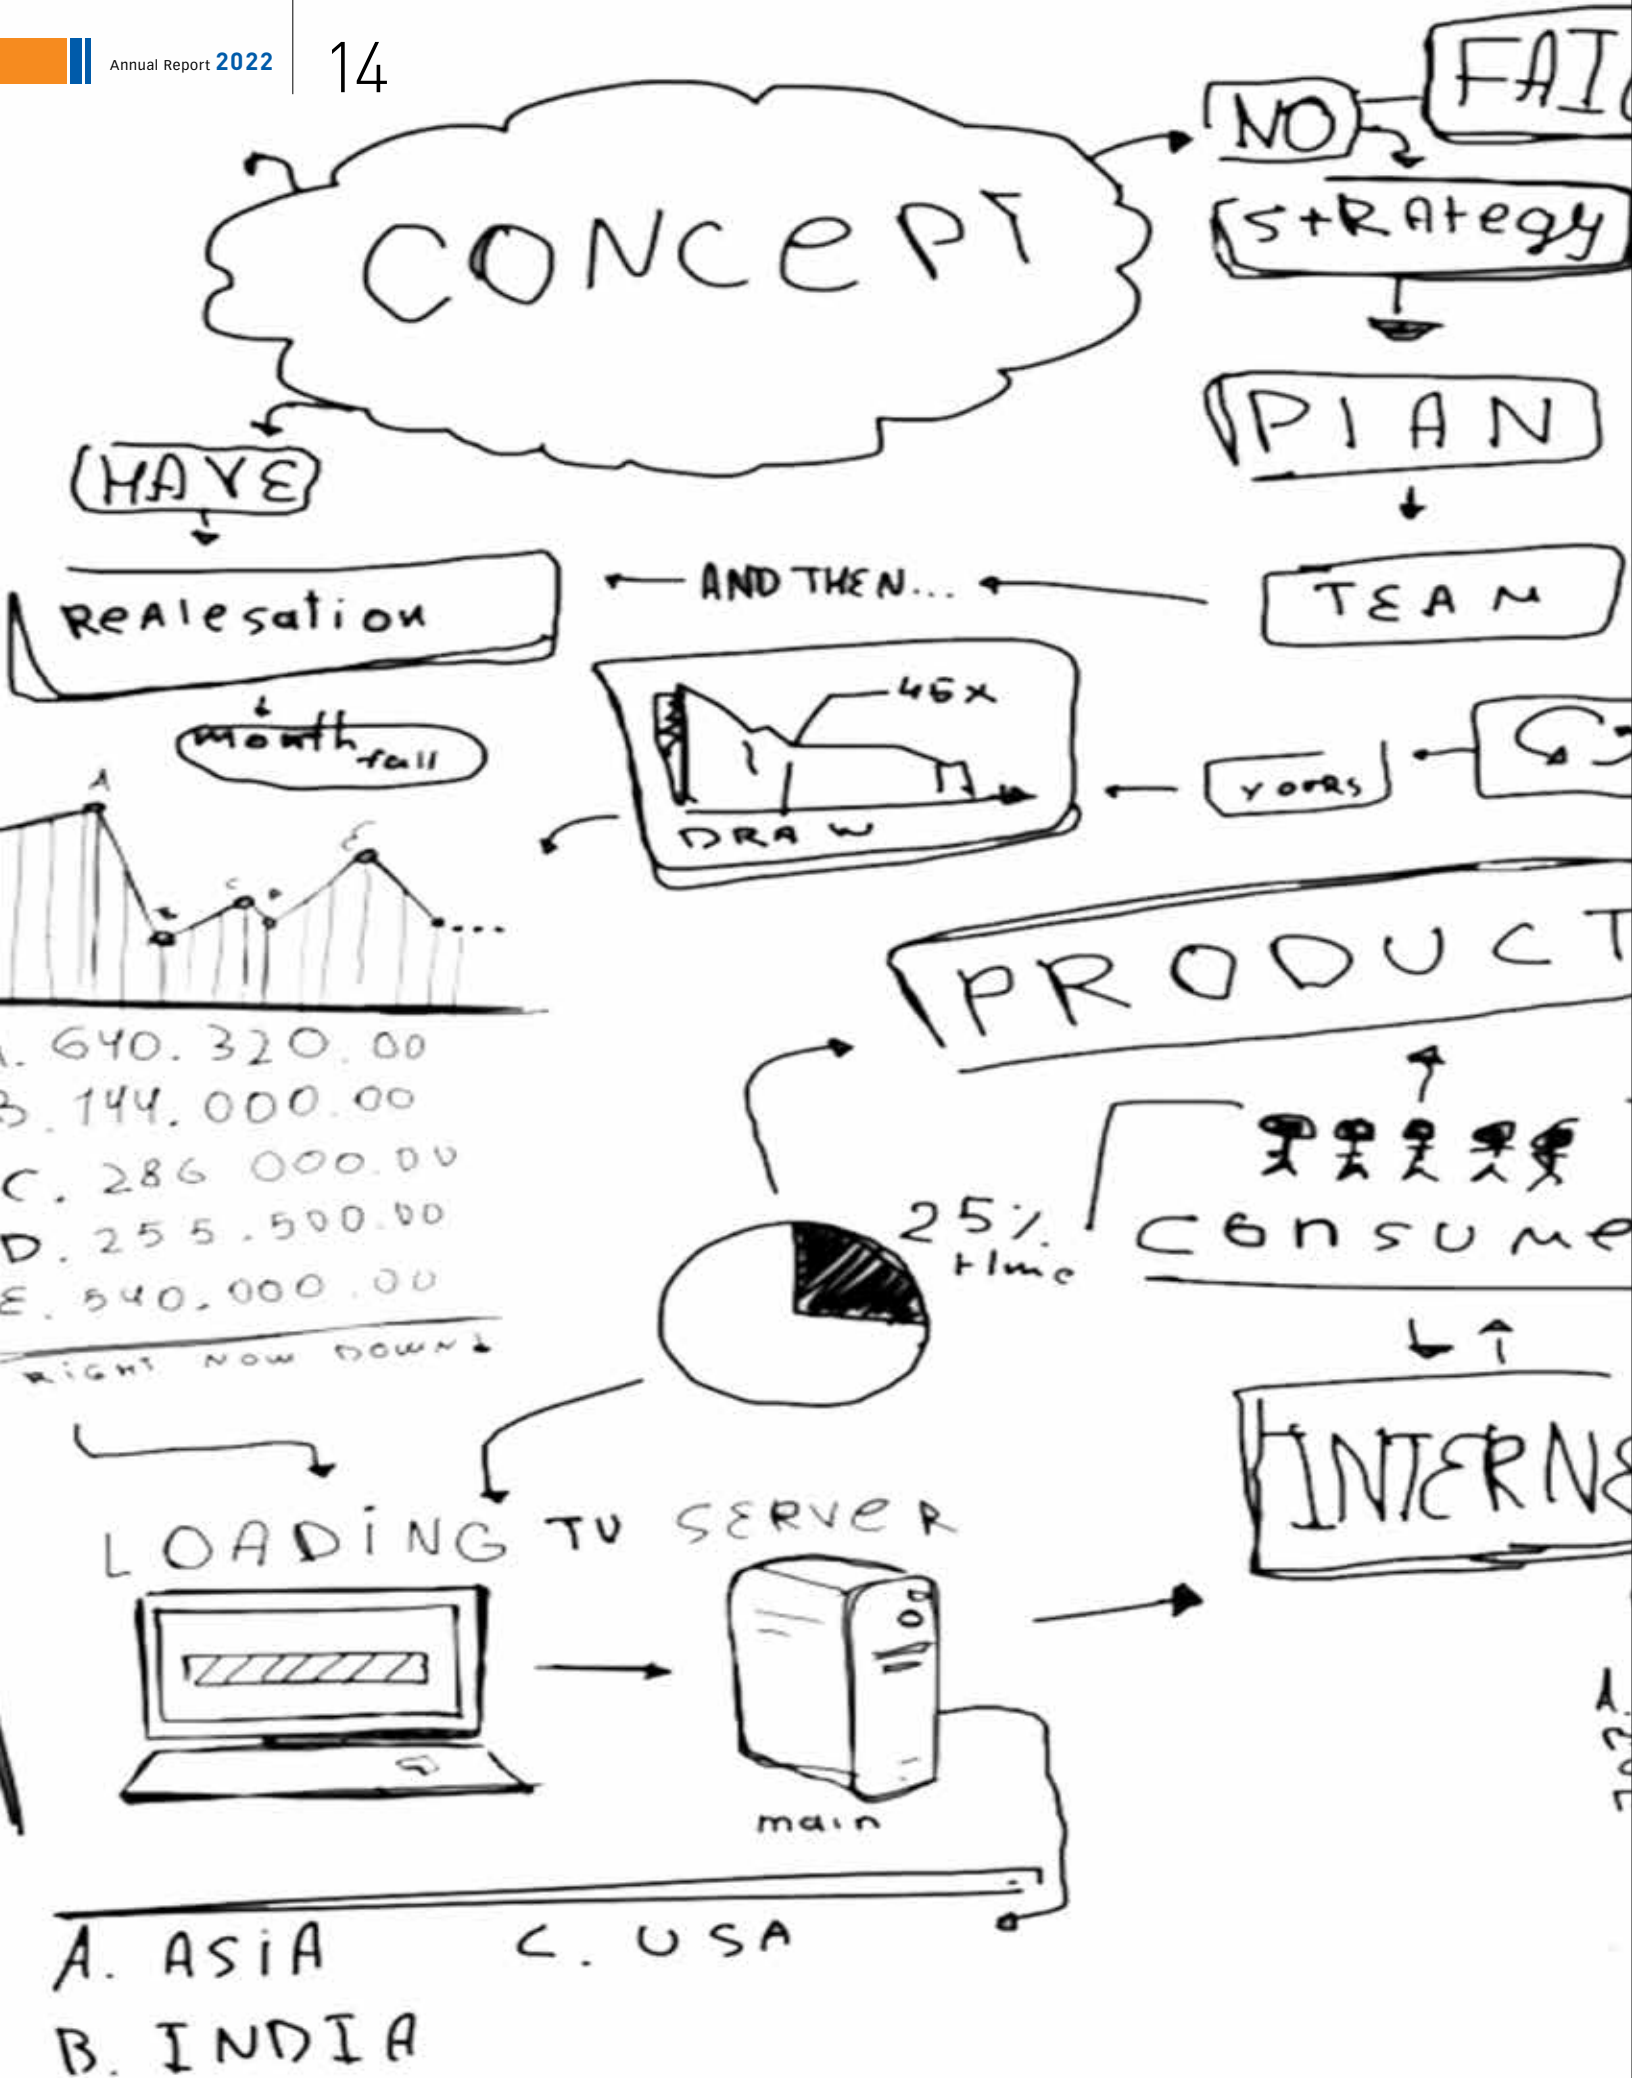 Annual Report 2022
14
CONCEPT
NO
FAI
StRAtegy
HAVE
PlAN
ReAlesation
AND THEN...
TEAM
month
fall
45x
DRAW
yoRs
A
B
C
D
E
PRODUCT
640.320.00
144.000.00
C. 286 000.00
D. 255.500.00
E. 540.000.00
RiGHT NOW DOWN
25%
time
consume
INTERNE
LOADiNG TU SERVeR
main
A. ASiA
C. USA
B. INDIA